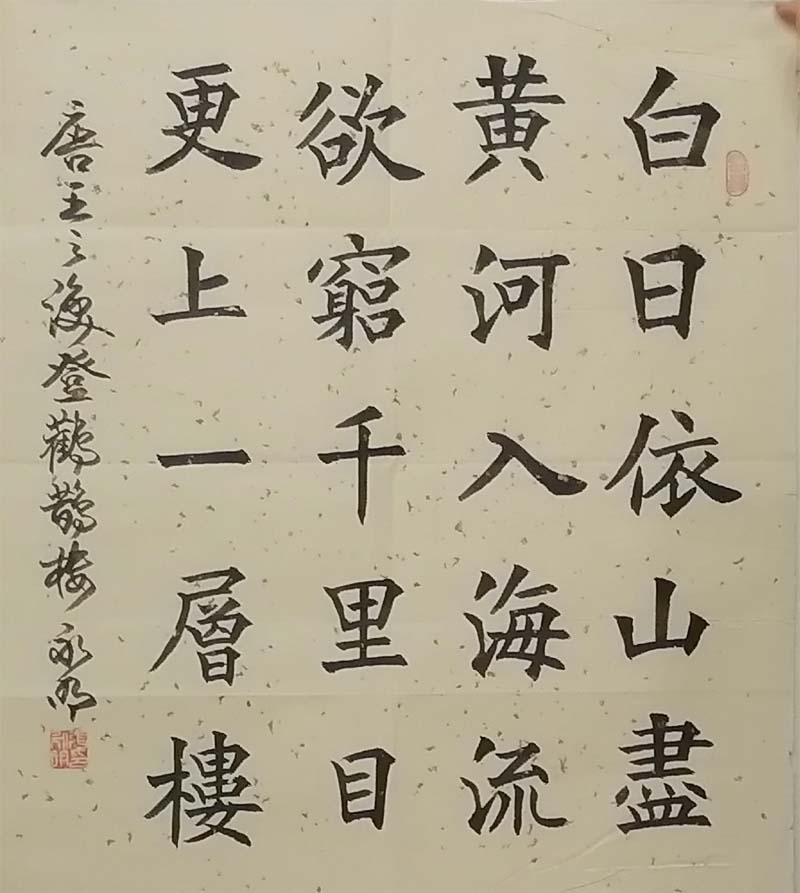 白日依山盡
黃河入海流
欲窮千里目
更上一層樓
唐王之渙登鸛鵲樓 永明